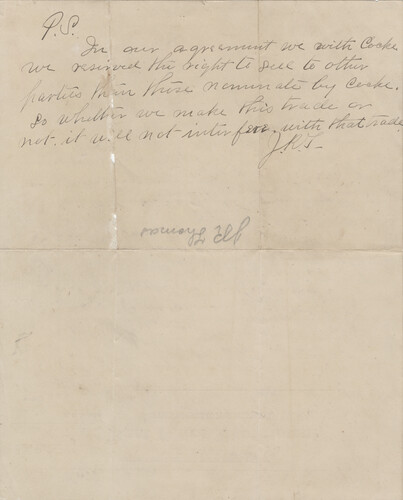 P.S.
In our agreement we with Cocke
we reserved the right to sell to other
parties than those nominate by Cocke.
So whether we make this trade or
not. it will not interfere with that trade
J.R.T.
J R Thomas